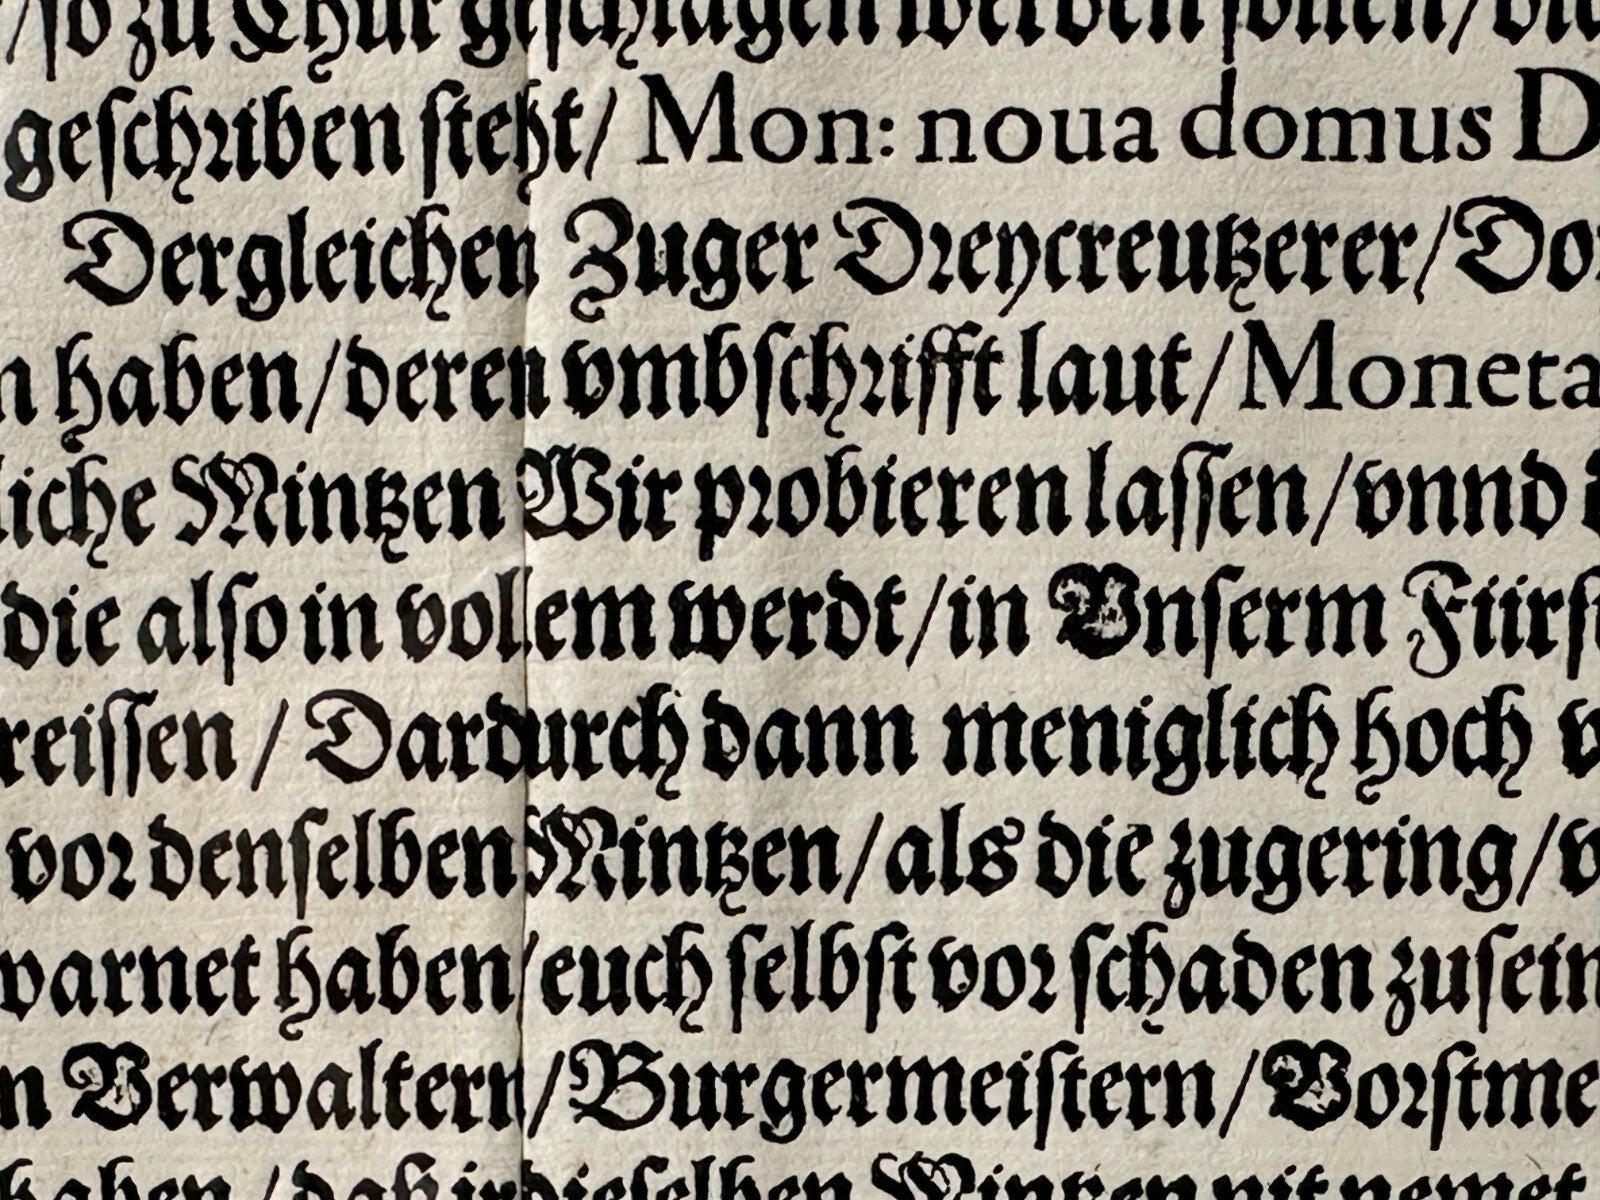 /so zu Chur geschlagen werden sollen/die
geschriben steht/ Mon: noua domus D
Dergleichen Zuger Dreycreutzerer/Dor
n haben/deren vmbschrifft laut/Moneta
liche Mintzen Wir probieren lassen/vnnd
die also in vollem werdt/in Vnserm Fürst
reissen / Dardurch dann meniglich hoch v
vor denselben Mintzen/als die zugering/v
warnet haben/euch selbst vor schaden zusein
n Verwaltern/Burgermeistern/Vorstme
haben/daß ir dieselben Mintzen nit nemet